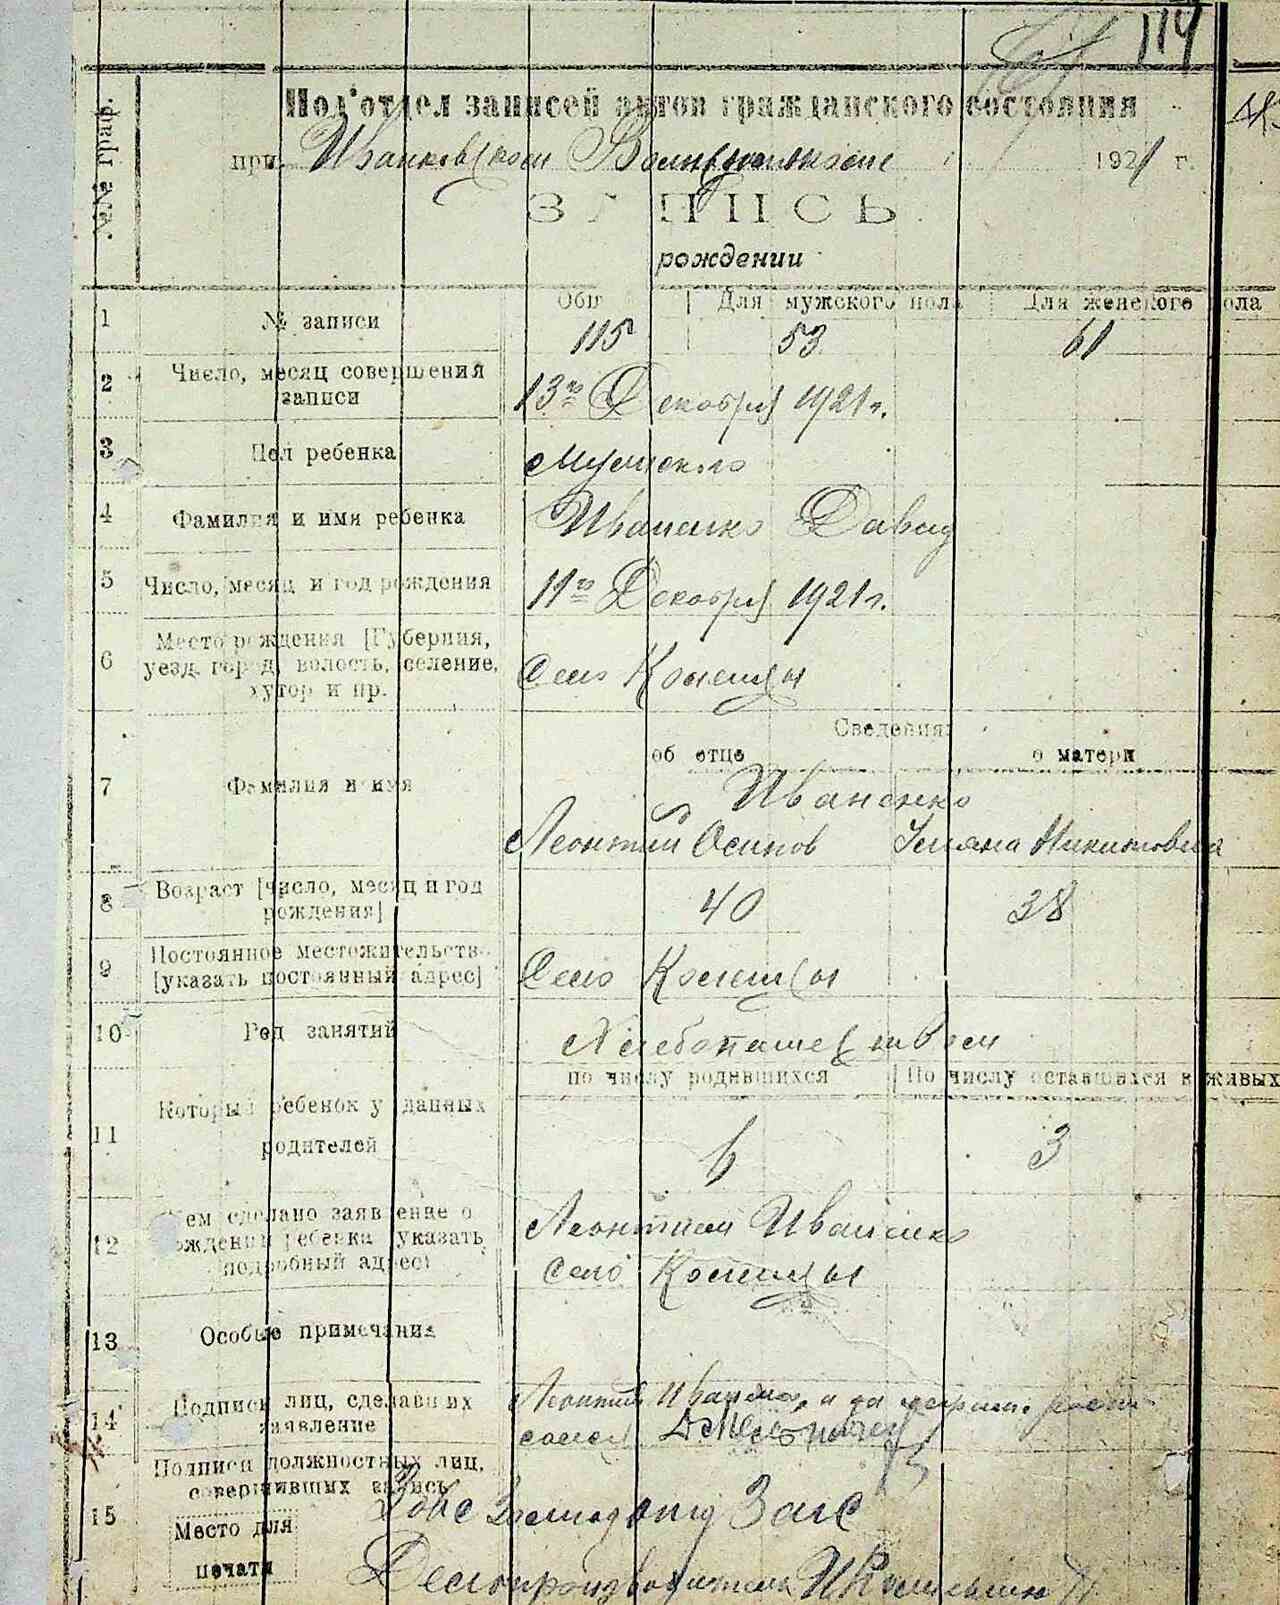 114
№№ граф.
Под'отдел записей актов гражданского состояния
при Иванковском Волисполкоме 1921 г.
ЗАПИСЬ
рождении
Общ Для мужского пола Для женского пола
1 № записи 115 53 61
2 Число, месяц совершения
записи 13го Декабря 1921 г.
3 Пол ребенка Мужского
4 Фамилия и имя ребенка Иваненко Давид
5 Число, месяц и год рождения 11го Декабря 1921 г.
6 Место рождения [Губерния,
уезд, город, волость, селение,
хутор и пр. Село
Сведения
об отце о матери
7 Фамилия и имя Иваненко
Леонтий Осипов Ульяна Никитовна
8 Возраст [число, месяц и год
рождения] 40 38
9 Постоянное местожительств
[указать постоянный адрес] Село
10 Род занятий Хлебопашеством
по числу родившихся По числу оставшихся в живых
11 Который ребенок у данных
родителей 6 3
12 Кем сделано заявление о
рождении ребенка [указать
подробный адрес] Леонтием Иваненко
село
13 Особые примечания
14 Подписи лиц, сделавших
заявление Леонтий Иваненко, а за
15 Подписи должностных лиц,
совершивших запись Загс
Место для
печати Делопроизводитель